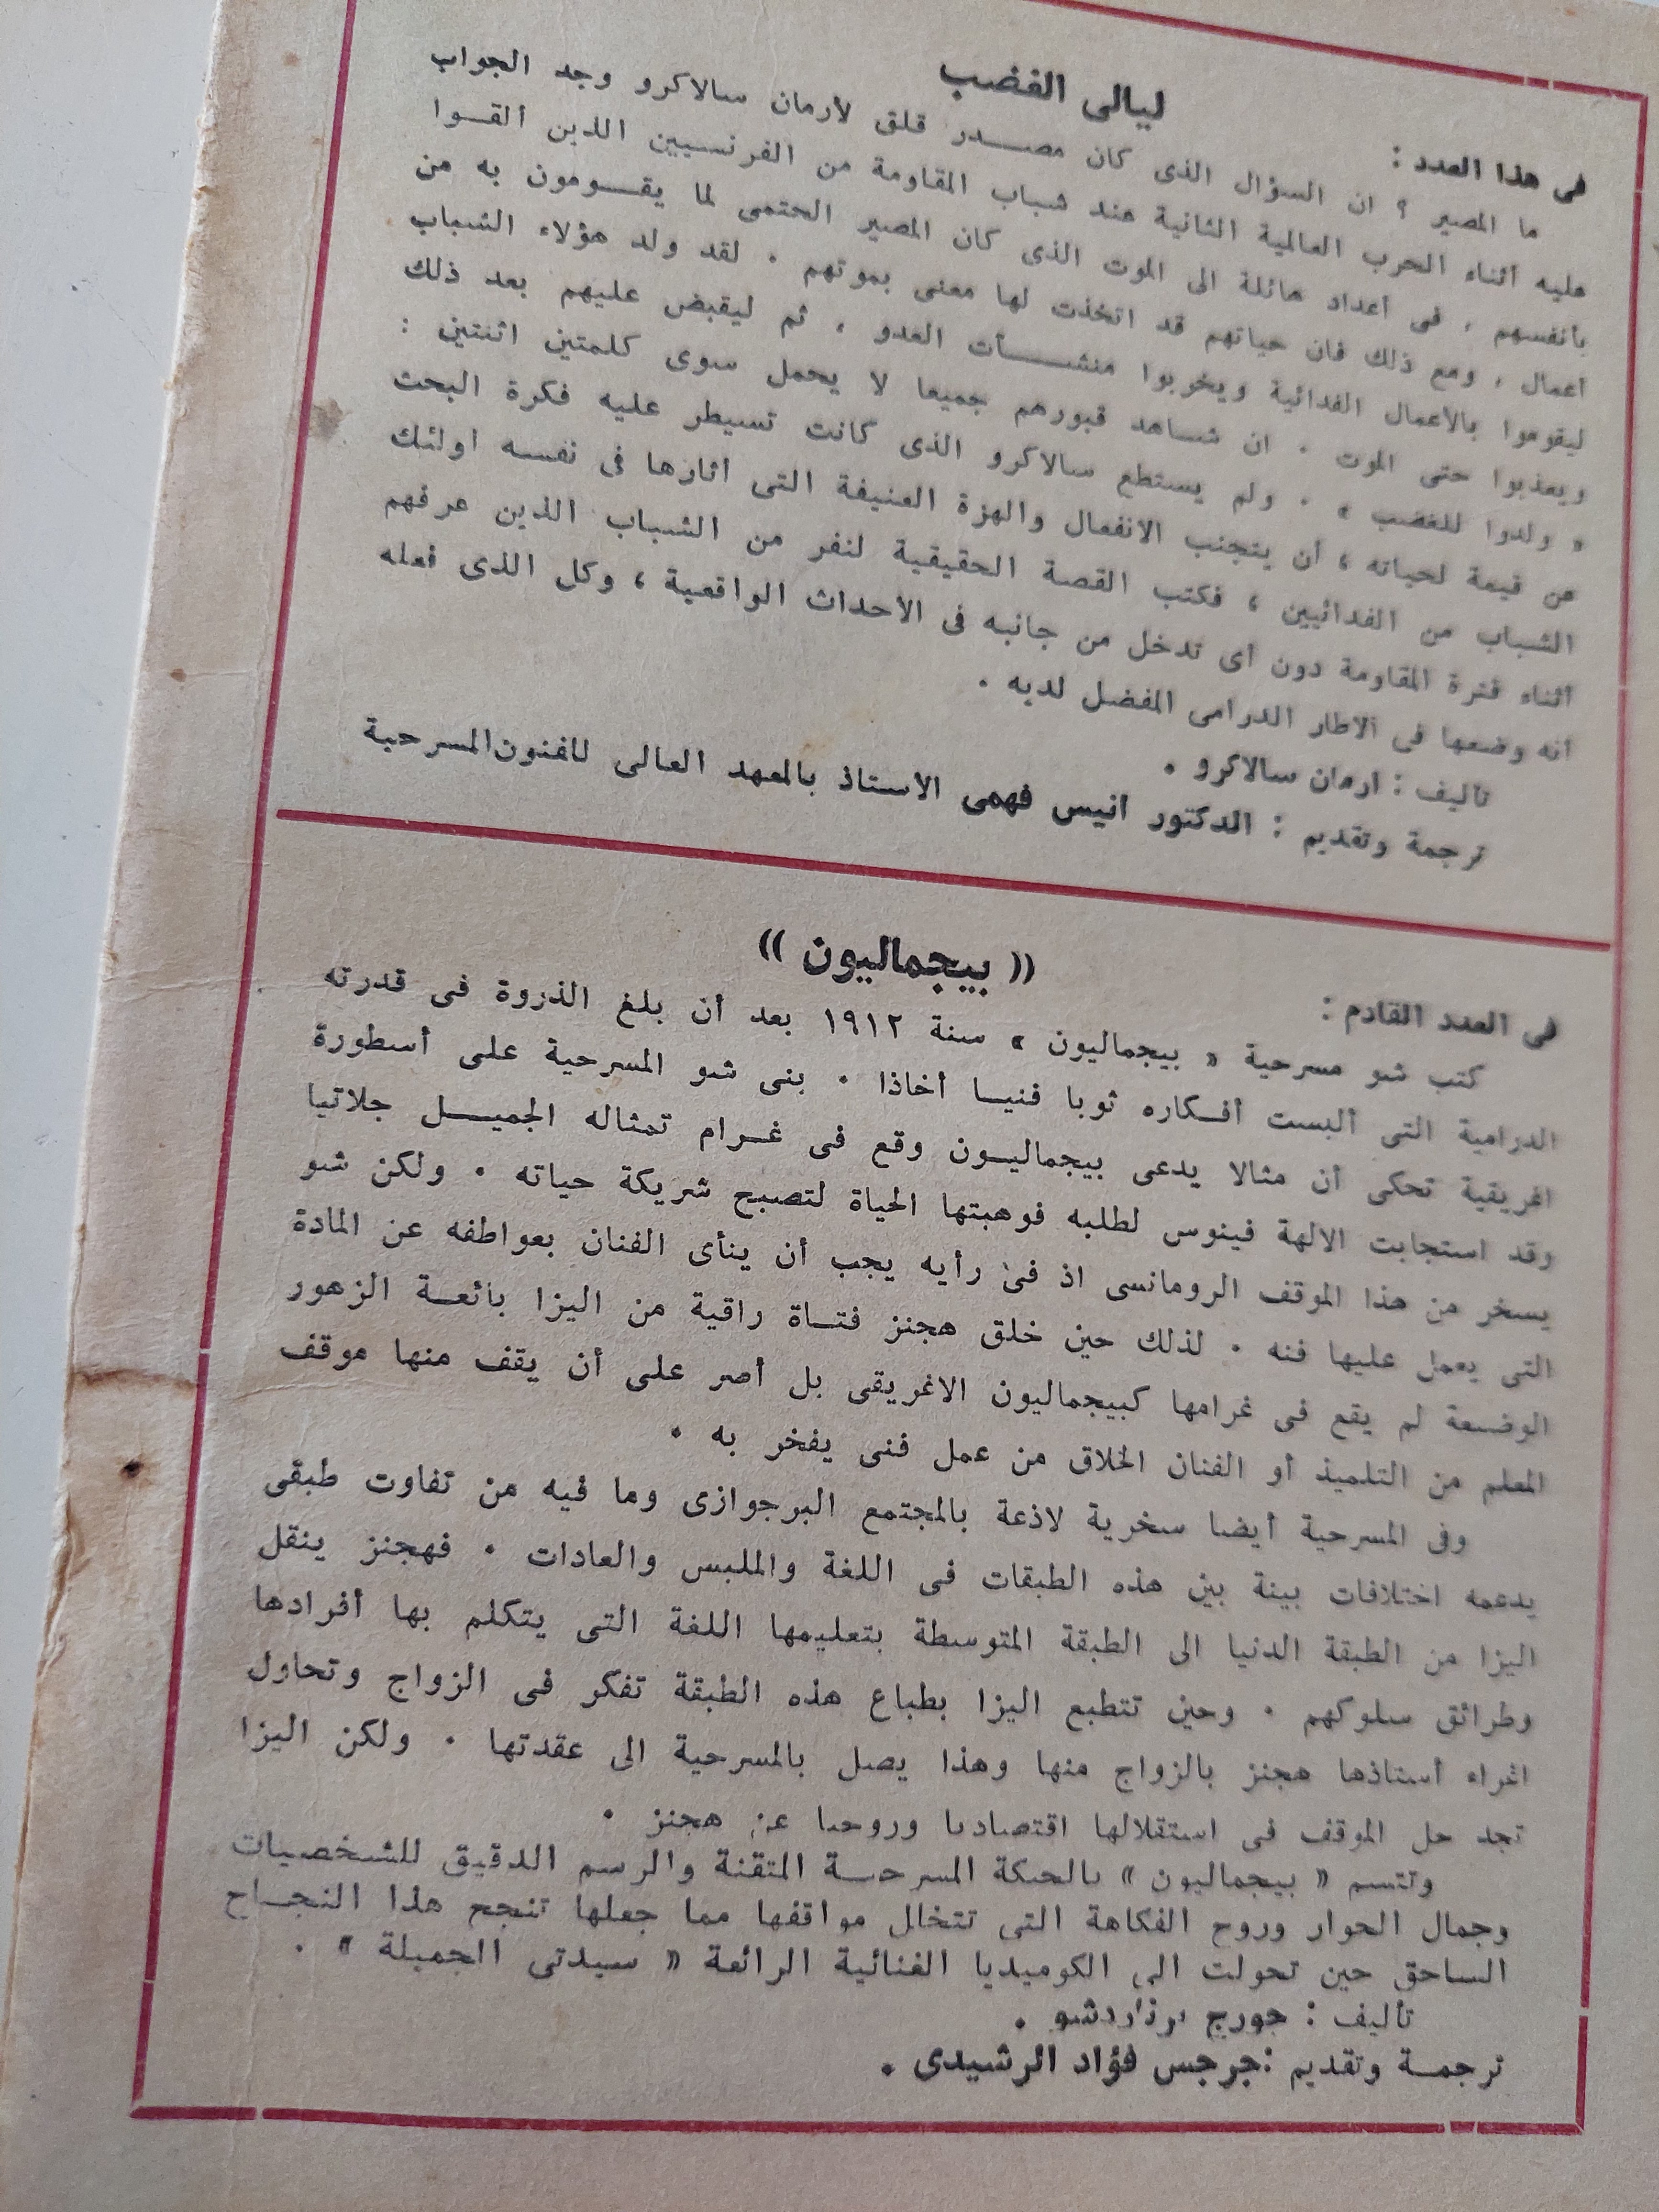 ليالى الغضب
فى هذا العدد :
ما المصير ؟ ان السؤال الذى كان مصـــدر قلق لارمان سالاكرو وجد الجواب
عليه أثناء الحرب العالمية الثانية عند شباب المقاومة من الفرنسيين الذين ألقــوا
بأنفسهم ، فى أعداد هائلة الى الموت الذى كان المصير الحتمى لما يقــومون به من
أعمال ، ومع ذلك فان حياتهم قد اتخذت لها معنى بموتهم . لقد ولد هؤلاء الشباب
ليقوموا بالأعمال الفدائية ويخربوا منشـــآت العدو ، ثم ليقبض عليهم بعد ذلك
ويعذبوا حتى الموت . ان شـاهد قبورهم جميعا لا يحمل سوى كلمتين اثنتين :
« ولدوا للغضب » . ولم يستطع سالاكرو الذى كانت تسيطر عليه فكرة البحث
عن قيمة لحياته ، أن يتجنب الانفعال والهزة العنيفة التى أثارها فى نفسه اولئك
الشباب من الفدائيين ، فكتب القصة الحقيقية لنفر من الشباب الذين عرفهم
أثناء فترة المقاومة دون أى تدخل من جانبه فى الأحداث الواقعية ، وكل الذى فعله
أنه وضعها فى الاطار الدرامى المفضل لديه .
تأليف : ارمان سالاكرو .
ترجمة وتقديم : الدكتور انيس فهمى الاستاذ بالمعهد العالى للفنون المسرحية
(( بيجماليون ))
فى العدد القادم :
كتب شو مسرحية « بيجماليون » سنة ١٩١٢ بعد أن بلغ الذروة فى قدرته
الدرامية التى ألبست أفـكاره ثوبا فنيـا أخاذا . بنى شو المسرحية على أسطورة
اغريقية تحكى أن مثالا يدعى بيجماليـون وقع فى غـرام تمثاله الجميــل جلاتيا
وقد استجابت الالهة فينوس لطلبه فوهبتها الحياة لتصبح شريكة حياته . ولكن شو
يسخر من هذا الموقف الرومانسى اذ فى رأيه يجب أن ينأى الفنان بعواطفه عن المادة
التى يعمل عليها فنه . لذلك حين خلق هجنز فتـاة راقية من اليزا بائعـة الزهور
الوضـعة لم يقع فى غرامها كبيجماليون الاغريقى بل أصر على أن يقف منها موقف
المعلم من التلميذ أو الفنان الخلاق من عمل فنى يفخر به .
وفى المسرحية أيضا سخرية لاذعة بالمجتمع البرجوازى وما فيه من تفاوت طبقى
يدعمه اختلافات بينة بين هذه الطبقات فى اللغة والملبس والعادات . فهجنز ينقل
اليزا من الطبقة الدنيا الى الطبقة المتوسطة بتعليمها اللغة التى يتكلم بها أفرادها
وطرائق سلوكهم . وحين تتطبع اليزا بطباع هذه الطبقة تفكر فى الزواج وتحاول
اغراء أستاذها هجنز بالزواج منها وهذا يصل بالمسرحية الى عقدتها . ولكن اليزا
تجد حل الموقف فى استقلالها اقتصاديا وروحيا عن هجنز .
وتتسم « بيجماليون » بالحبكة المسرحيـة المتقنة والرسم الدقيق للشخصيات
وجمال الحوار وروح الفكاهة التى تتخلل مواقفها مما جعلها تنجح هذا النجـاح
الساحق حين تحولت الى الكوميديا الغنائية الرائعة « سيدتى الجميلة » .
تأليف : جورج برناردشو .
ترجمـة وتقديم : جرجس فؤاد الرشيدى .